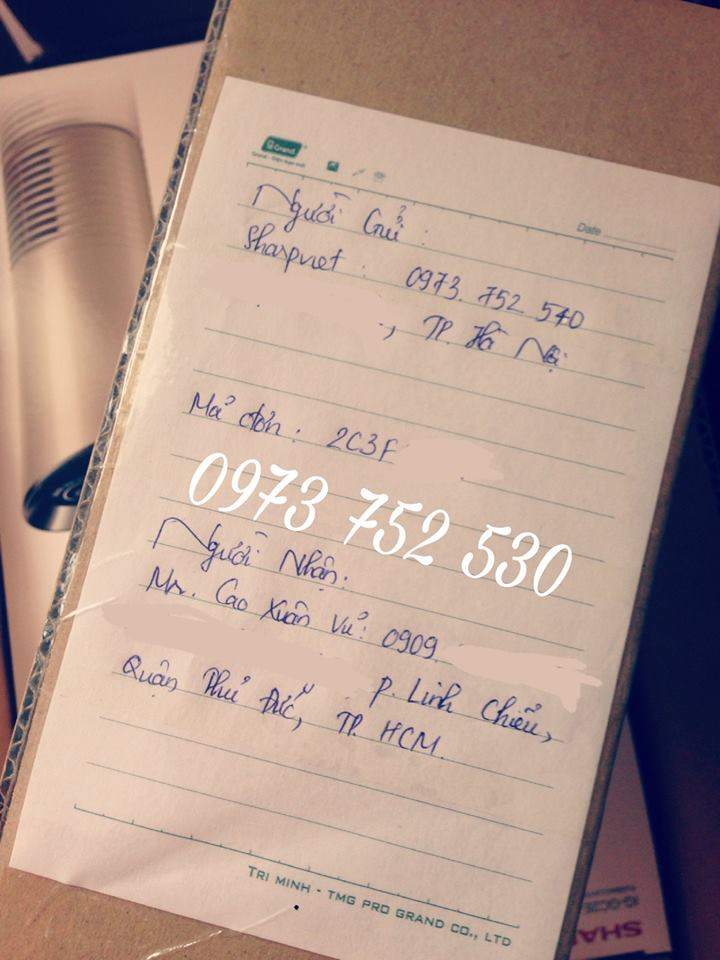 Grand
Grand - Diện mạo mới
Date
Người Gửi :
Sharpviet : 0973. 752 540
, TP. Hà Nội
Mả đơn : 2C3F
0973 752 530
Người Nhận:
Mr. Cao Xuân Vủ : 0909.
P. Linh Chiểu,
Quận Thủ Đức, TP. HCM.
TRI MINH - TMG PRO GRAND CO., LTD
IG-GC2E
SHA